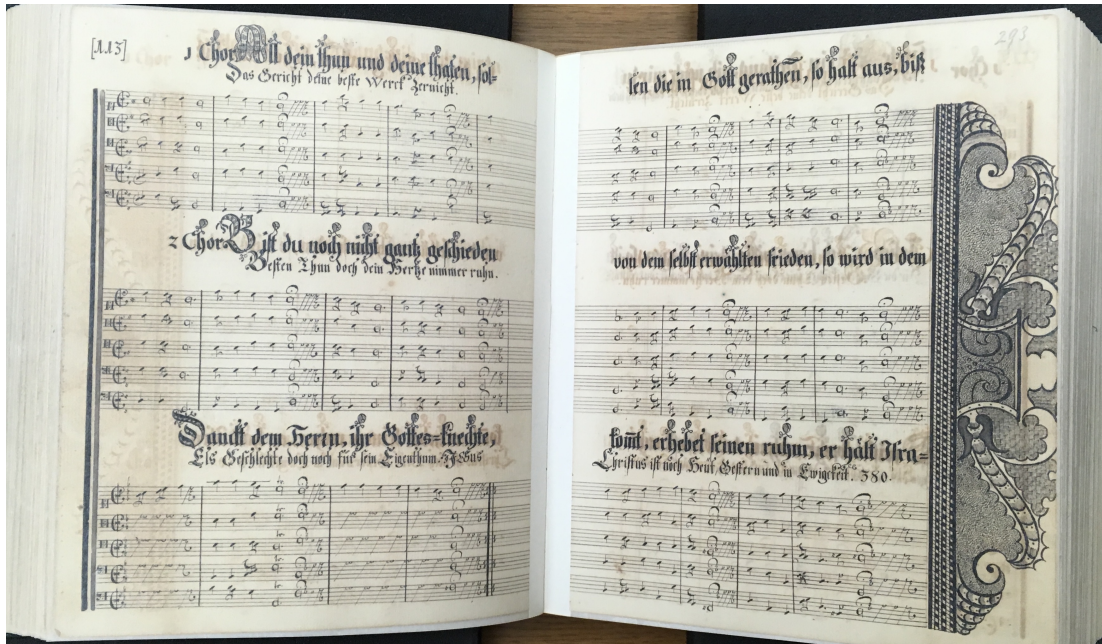 [113]
1 Chor All dein thun und deine thaten, sol-
Das Gericht deine beste Werck zernicht.
2 Chor Bist du noch nicht gantz geschieden
Besten Thun doch dein Hertze nimmer ruhn.
Danckt dem Herrn, ihr Gottes-knechte,
Els Geschlechte doch noch für sein Eigenthum.
293
len die in Gott gerathen, so halt aus, biß
von dem selbst erwählten frieden, so wird in dem
komt, erhebet seinen ruhm, er hält Isra-
Christus ist noch Heut, Gestern und in Ewigkeit. 380.